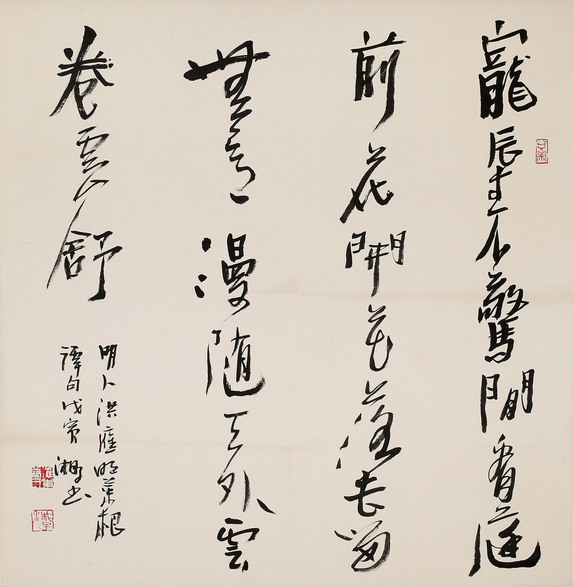 寵辱不驚閒看庭
前花開花落去留
無意漫隨天外雲
卷雲舒
明人洪應明菜根
譚句戊寅湘書